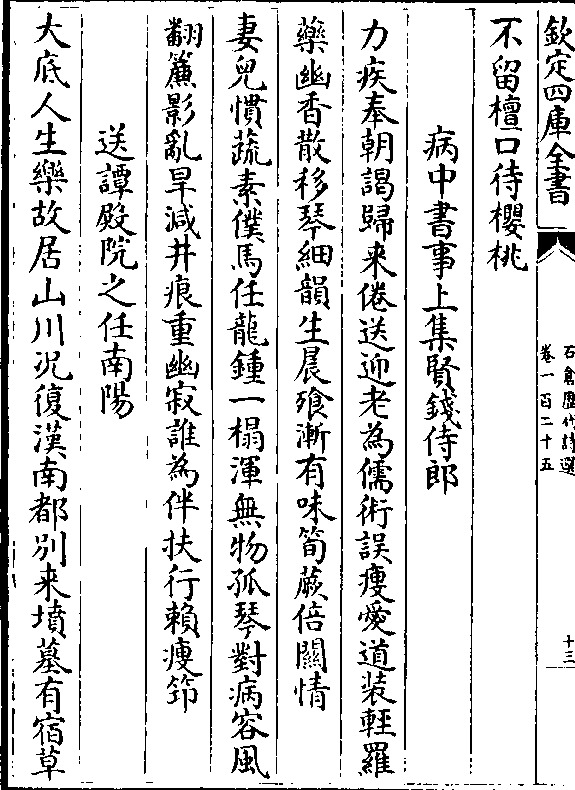 欽定四庫全書
石倉歷代詩選
卷一百二十五
十三
不留檀口待櫻桃
病中書事上集賢錢侍郎
力疾奉朝謁歸来倦送迎老為儒術誤瘦愛道装輕羅
藥幽香散移琴細韻生晨飱漸有味筍蕨倍關情
妻兒慣蔬素僕馬任龍鍾一榻渾無物孤琴對病容風
翻簾影亂旱減井痕重幽寂誰為伴扶行賴瘦笻
送譚殿院之任南陽
大底人生樂故居山川况復漢南都别来墳墓有宿草